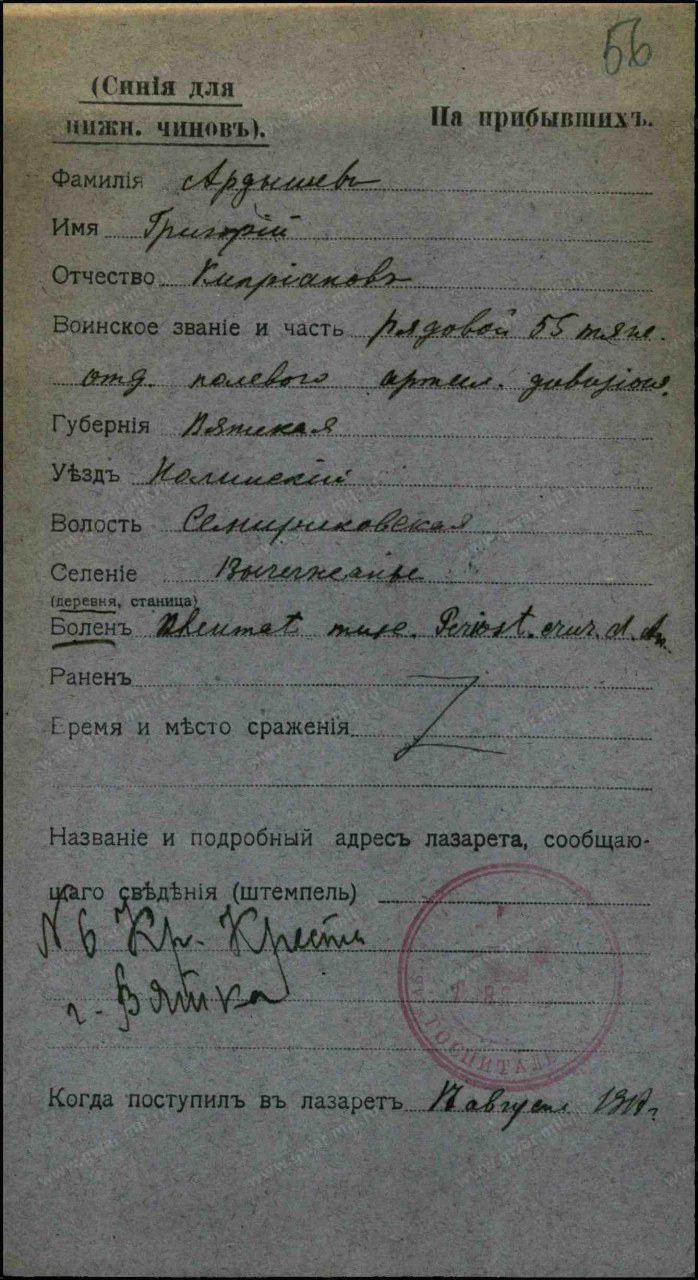 56
(Синія для
нижн. чиновъ).
На прибывшихъ.
Фамилія Ардышевъ
Имя Григорій
Отчество Кипріановъ
Воинское званіе и часть рядовой 55 тяж.
отд. полевого артил. дивизіона
Губернія Вятская
Уѣздъ Нолинскій
Волость
Селеніе
(деревня, станица)
Боленъ Rheumat musc. Periost. crur. d.
Раненъ
Время и мѣсто сраженія
Z
Названіе и подробный адресъ лазарета, сообщаю-
щаго свѣдѣнія (штемпель)
N 6 Кр. Креста
г. Вятка
ГОСПИТАЛЬ
Когда поступилъ въ лазаретъ августа 1917 г